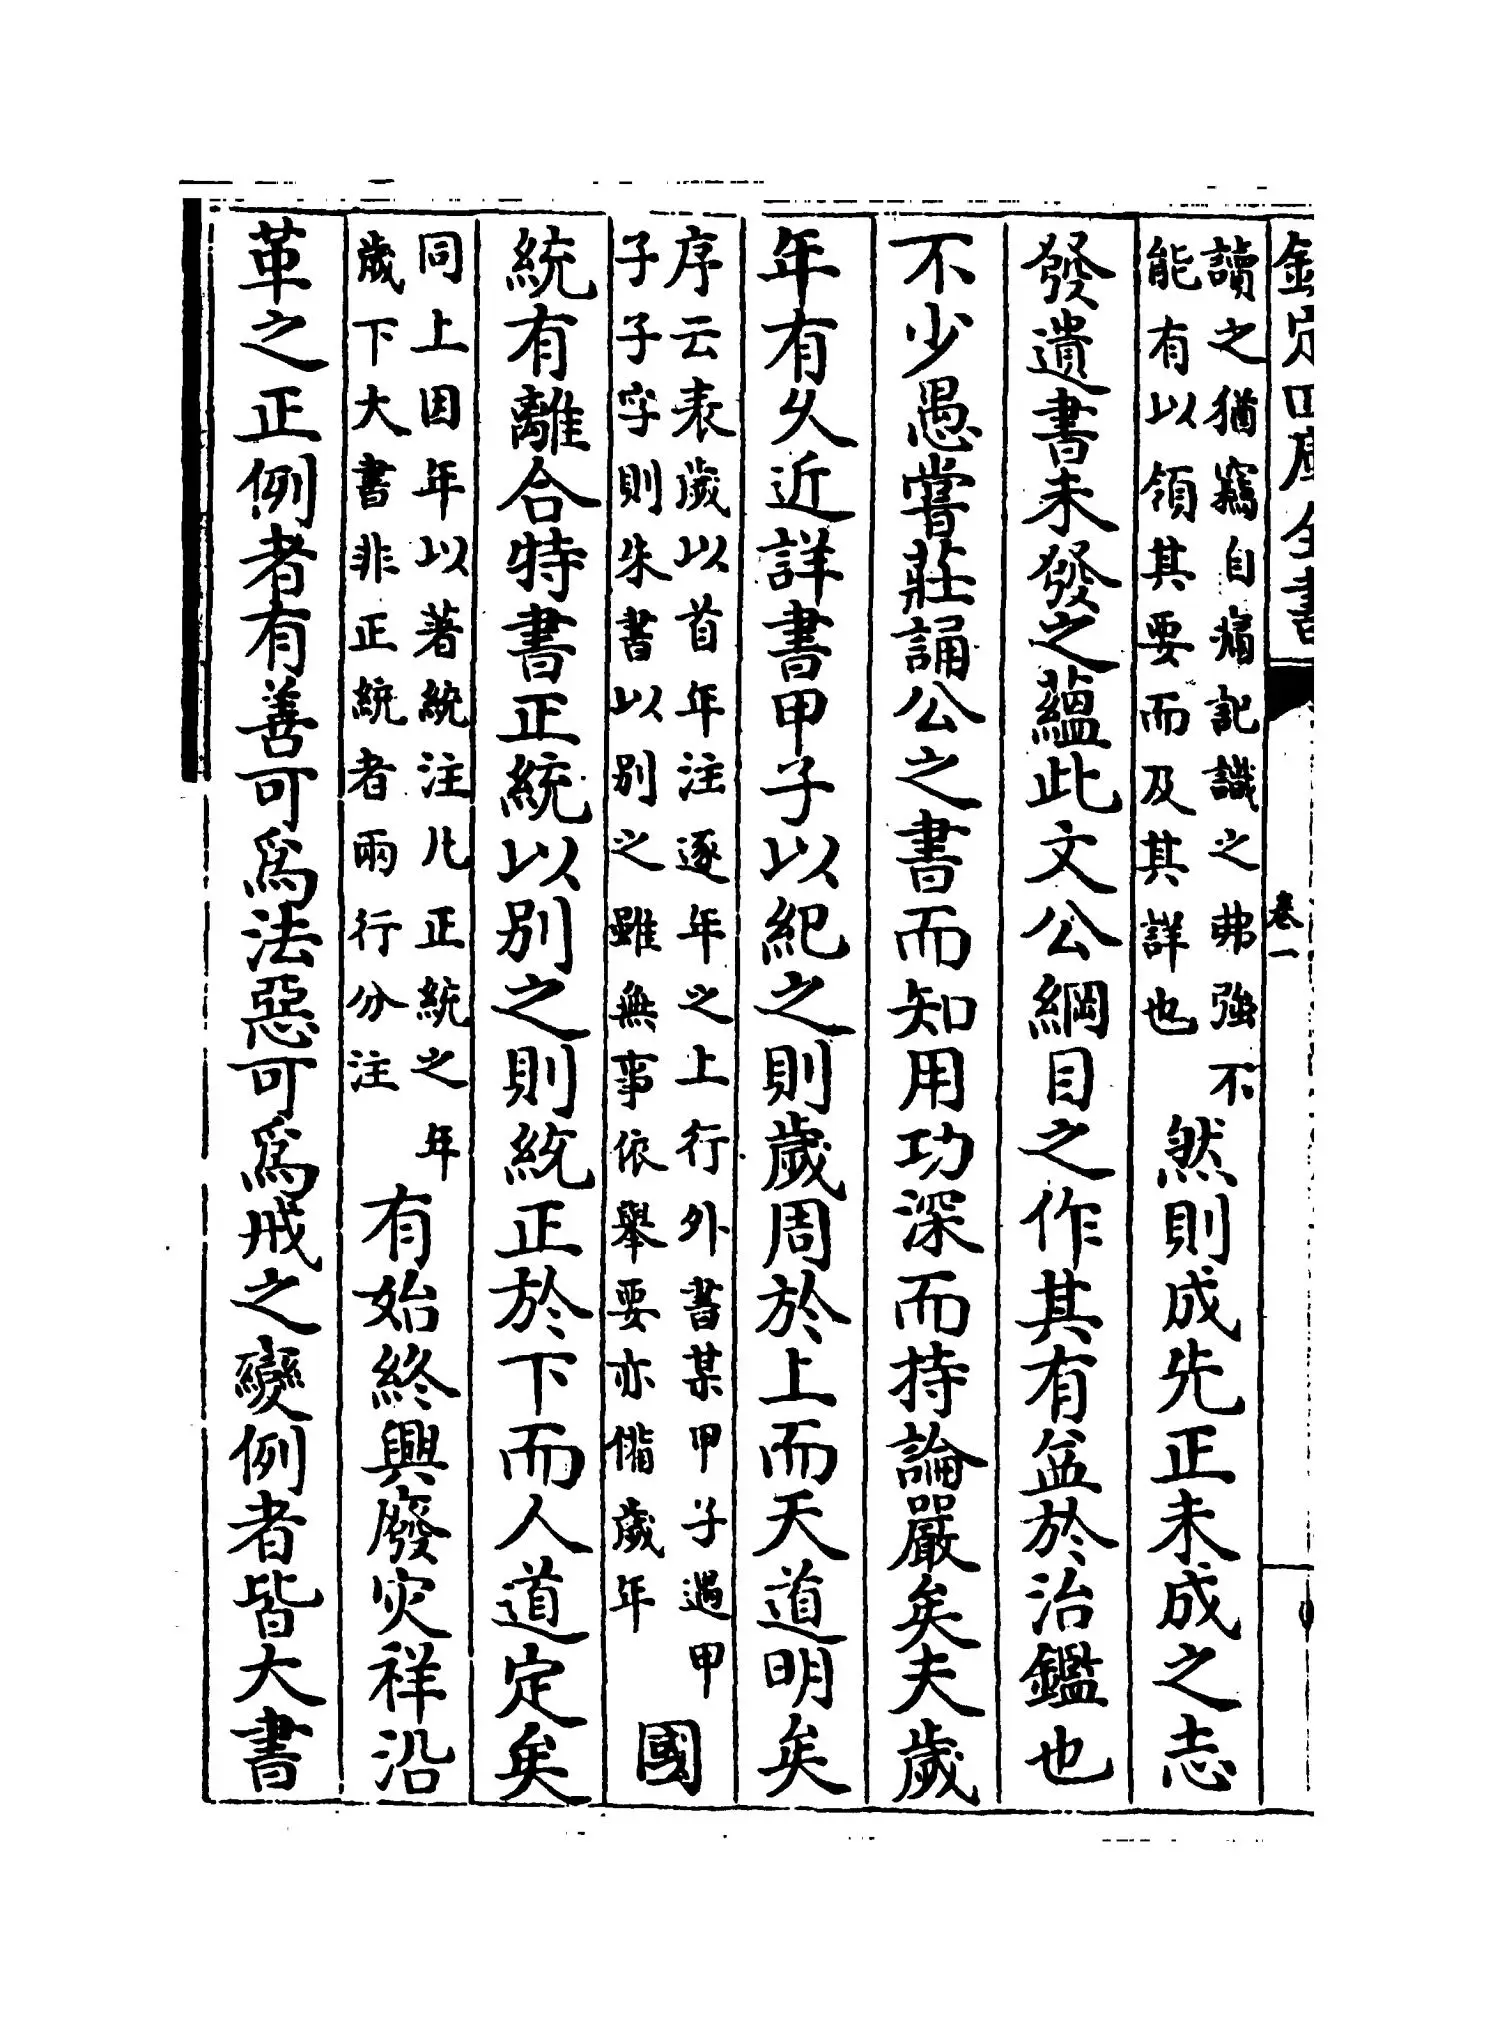 欽定四庫全書
卷一
讀之猶竊自病記識之弗強不
能有以領其要而及其詳也
然則成先正未成之志
發遺書未發之蘊此文公綱目之作其有益於治鑑也
不少愚嘗莊誦公之書而知用功深而持論嚴矣夫歲
年有久近詳書甲子以紀之則歲周於上而天道明矣
序云表歲以首年注逐年之上行外書某甲子遇甲
子子字則朱書以别之雖無事依舉要亦備歲年
國
統有離合特書正統以别之則統正於下而人道定矣
同上因年以著統注凡正統之年
歲下大書非正統者兩行分注
有始終興廢灾祥沿
革之正例者有善可為法惡可為戒之變例者皆大書